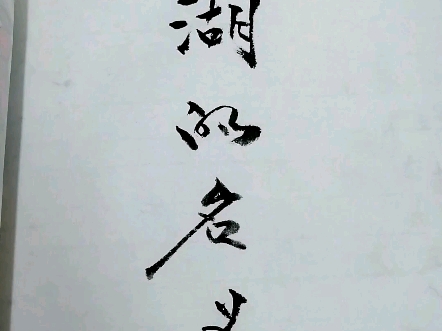 湖的名